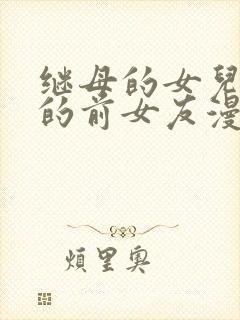 继母的女兒
的前女友漫
煩里奥